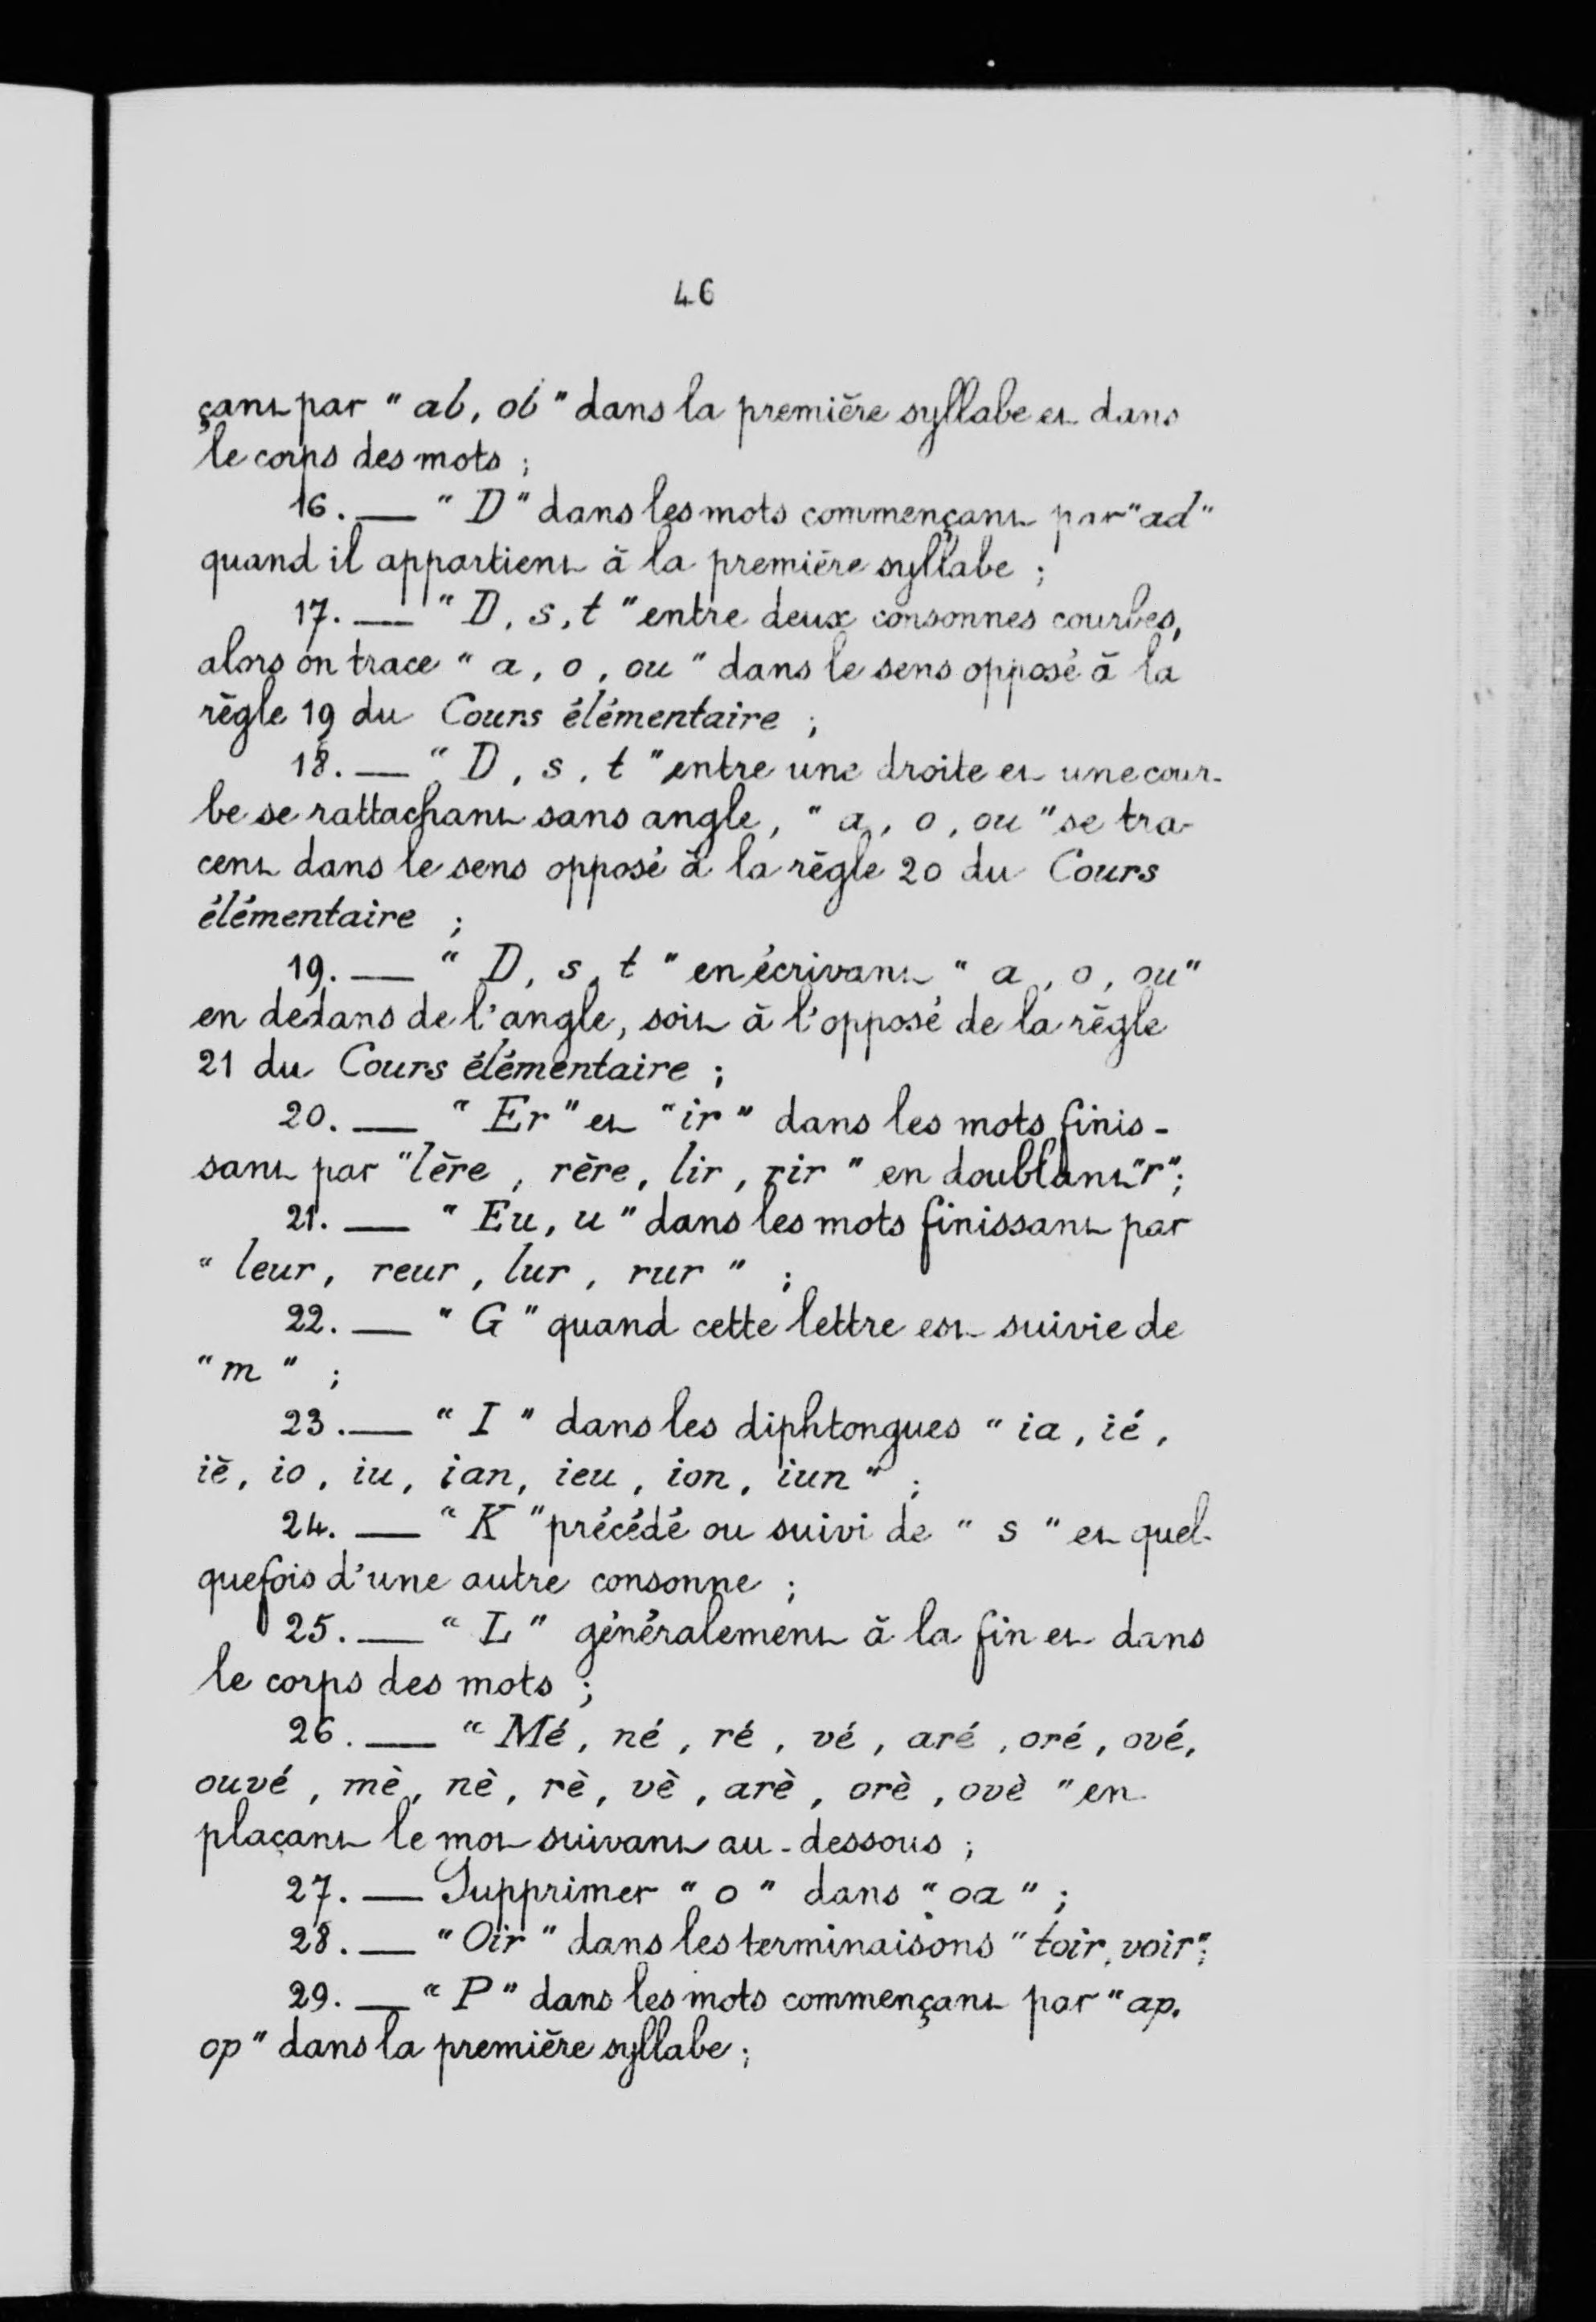 46
çant par " ab, ob " dans la première syllabe et dans
le corps des mots ;
16. — " D " dans les mots commençant par " ad "
quand il appartient à la première syllabe ;
17. — " D, s, t " entre deux consonnes courbes,
alors on trace " a, o, ou " dans le sens opposé à la
règle 19 du Cours élémentaire ;
18. — " D, s, t " entre une droite et une cour-
be se rattachant sans angle, " a, o, ou " se tra-
cent dans le sens opposé à la règle 20 du Cours
élémentaire ;
19. — " D, s, t " en écrivant " a, o, ou "
en dedans de l'angle, soit à l'opposé de la règle
21 du Cours élémentaire ;
20. — " Er " et " ir " dans les mots finis-
sant par " lère, rère, lir, rir " en doublant " r " ;
21. — " Eu, u " dans les mots finissant par
" leur, reur, lur, rur " ;
22. — " G " quand cette lettre est suivie de
" m " ;
23. — " I " dans les diphtongues " ia, ié,
iè, io, iu, ian, ieu, ion, iun " ;
24. — " K " précédé ou suivi de " s " et quel-
quefois d'une autre consonne ;
25. — " L " généralement à la fin et dans
le corps des mots ;
26. — " Mé, né, ré, vé, aré, oré, ové,
ouvé, mè, nè, rè, vè, arè, orè, ovè " en
plaçant le mot suivant au-dessous ;
27. — Supprimer " o " dans " oa " ;
28. — " Oir " dans les terminaisons " toir, voir " ;
29. — " P " dans les mots commençant par " ap,
op " dans la première syllabe ;